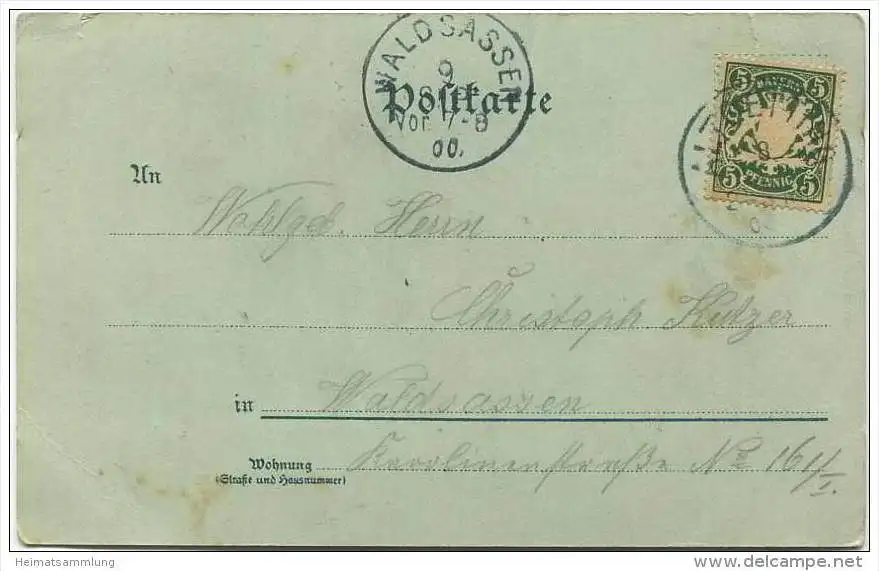 WALDSASSEN
9
Vor. 7-8
00.
Postkarte
5 BAYERN 5
5 PFENNIG 5
An
Wohlgeb. Herrn
Christoph Kutzer
in Waldsassen
Wohnung Karolinenstraße No 161/I.
(Straße und Hausnummer)
Heimatsammlung
delcampe.net